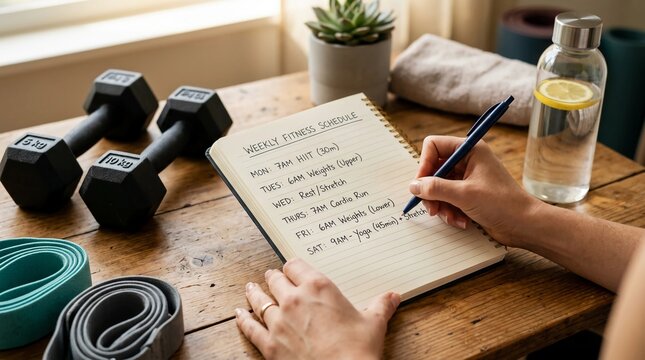 WEEKLY FITNESS SCHEDULE
MON: 7AM HIIT (30m)
TUES: 6AM Weights (Upper)
WED: Rest/Stretch
THURS: 7AM Cardio Run
FRI: 6AM Weights (Lower)
SAT: 9AM - Yoga (45min) + Stretch
5kg
10kg